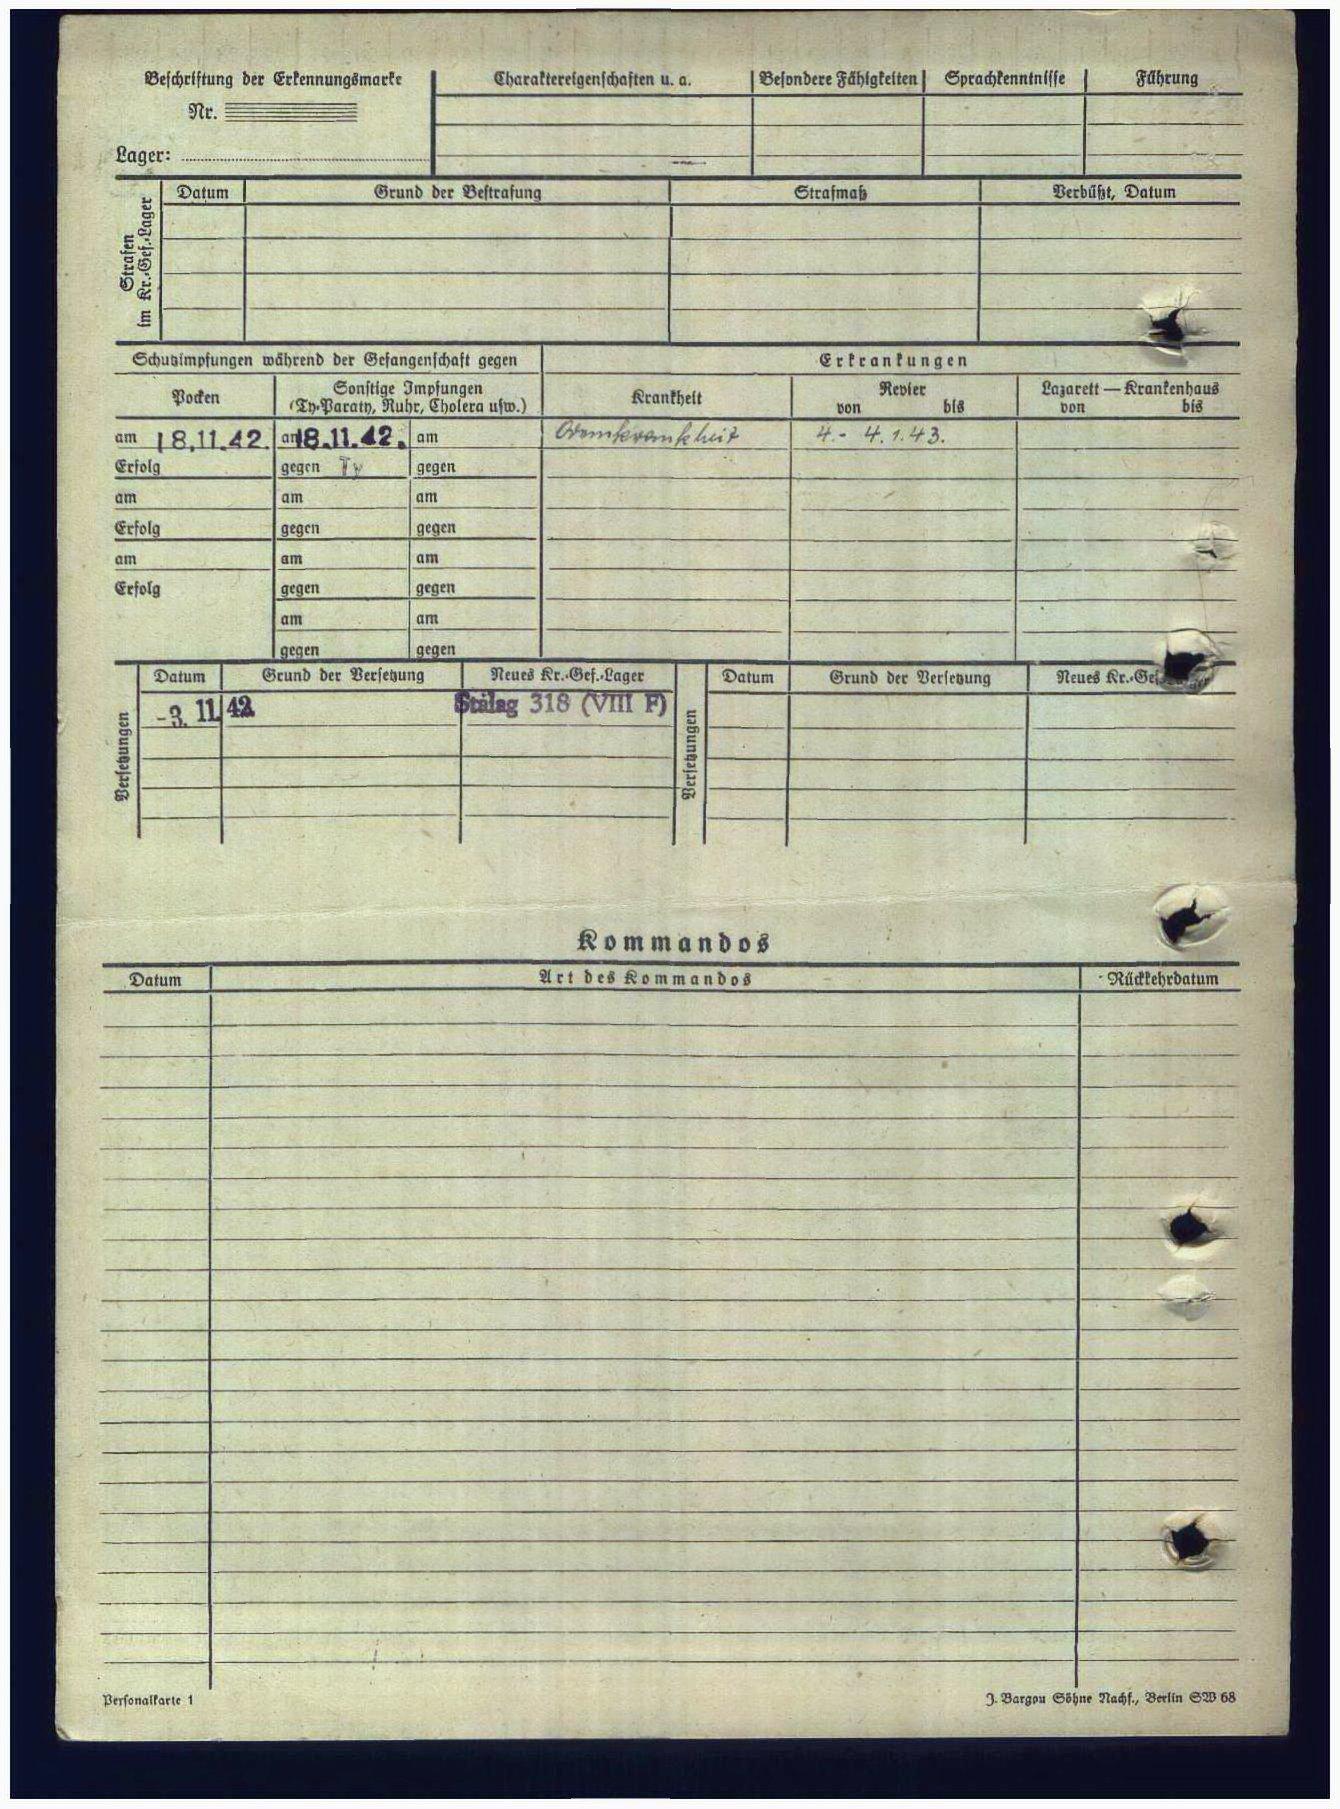 Beschriftung der Erkennungsmarke
Nr.
Lager:
Charaktereigenschaften u. a.
Besondere Fähigkeiten
Sprachkenntnisse
Führung
Strafen im Kr.-Gef.-Lager
Datum
Grund der Bestrafung
Strafmaß
Verbüßt, Datum
Schutzimpfungen während der Gefangenschaft gegen
Erkrankungen
Pocken
Sonstige Impfungen
(Ty-Paraty, Ruhr, Cholera usw.)
Krankheit
Revier
von bis
Lazarett — Krankenhaus
von bis
am 18.11.42. am 18.11.42. am
4.- 4.1.43.
Erfolg gegen Ty gegen
am am am
Erfolg gegen gegen
am am am
Erfolg gegen gegen
am am
gegen gegen
Versetzungen
Datum Grund der Versetzung Neues Kr.-Gef.-Lager
-3. 11. 42 Stalag 318 (VIII F)
Versetzungen
Datum Grund der Versetzung Neues Kr.-Gef.-Lager
Kommandos
Datum Art des Kommandos Rückkehrdatum
Personalkarte 1
J. Bargou Söhne Nachf., Berlin SW 68